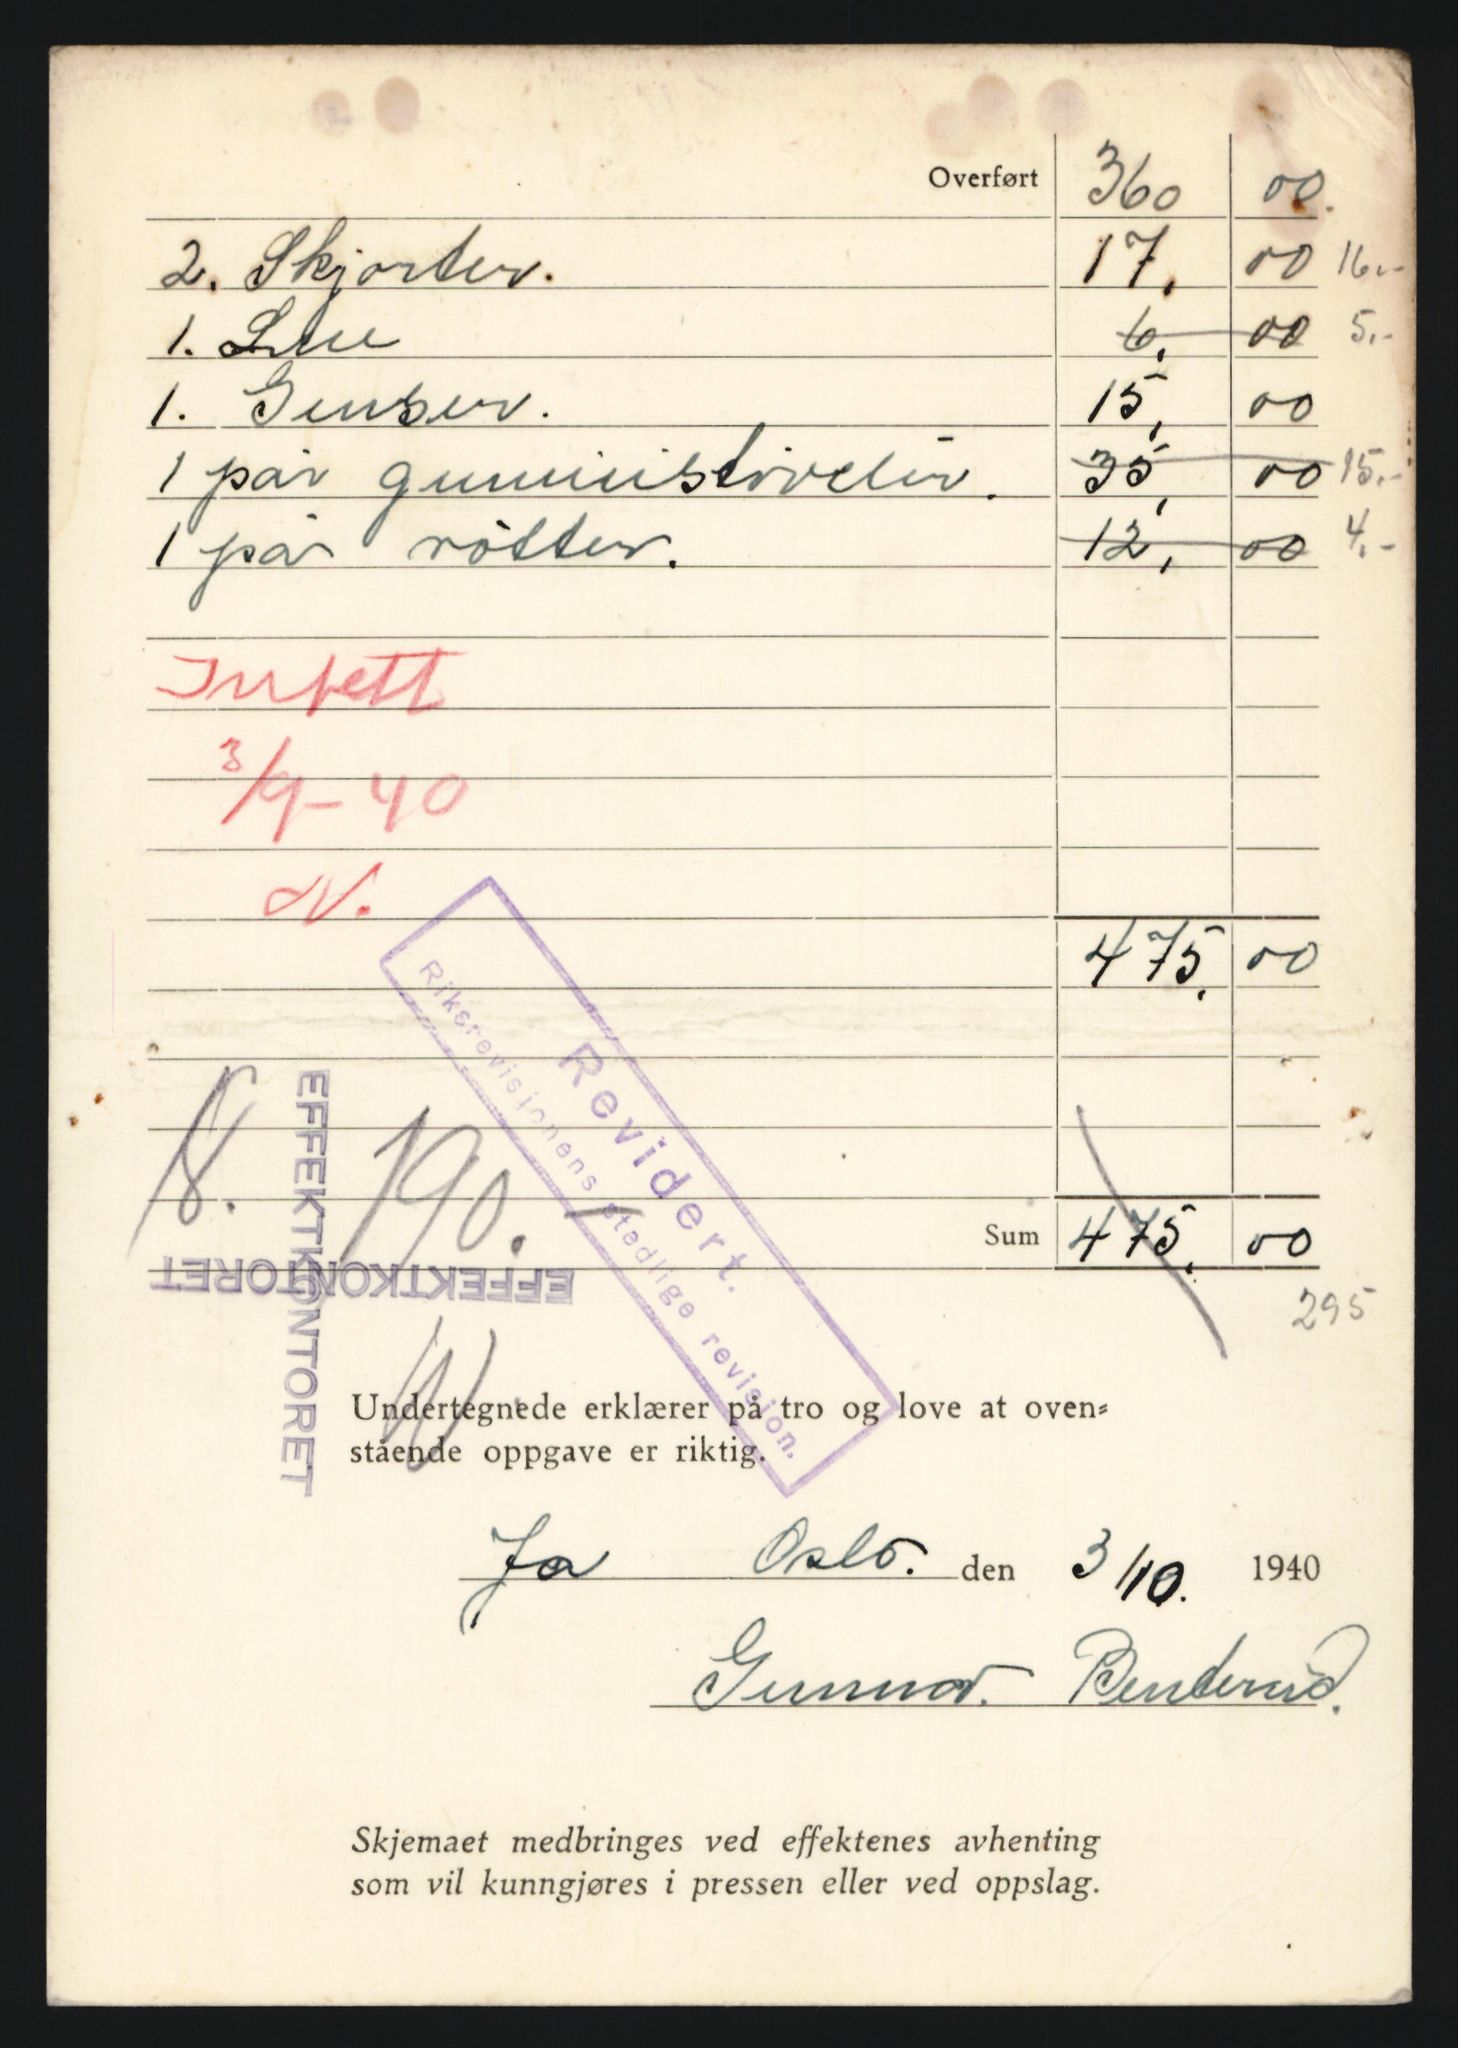 Overført 360 00.
2. Skjorter. 17, 00 16.-
1. Lue 6, 00 5.-
1. Genser. 15, 00
1 par gummistövler. 35, 00 15.-
1 par votter. 12, 00 4.-
3/9-40
N.
475, 00
Revidert.
Riksrevisjonens stedlige revisjon.
EFFEKTKONTORET
190.-
EFFEKTKONTORET
Sum 475, 00
295
Undertegnede erklærer på tro og love at oven=
stående oppgave er riktig.
Ja Oslo. den 3/10. 1940
Gunnar Benterud.
Skjemaet medbringes ved effektenes avhenting
som vil kunngjøres i pressen eller ved oppslag.